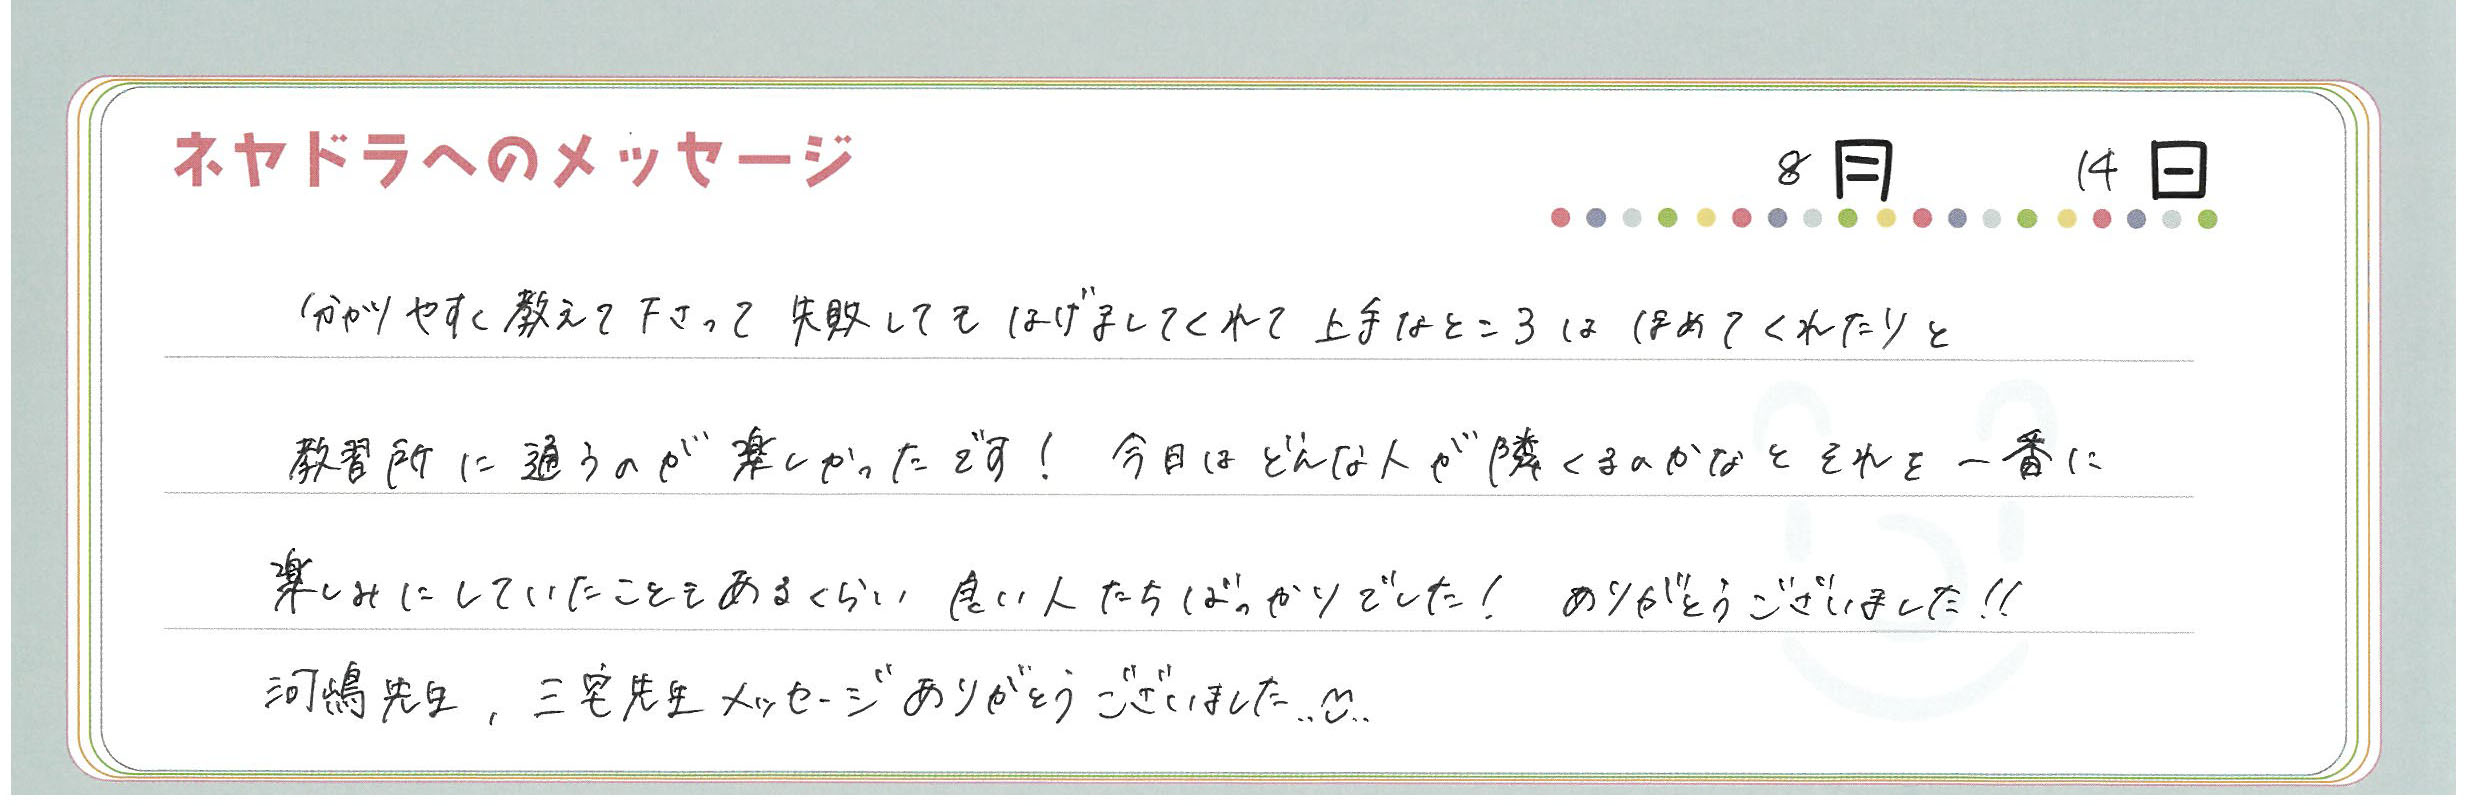 ネヤドラへのメッセージ
8月 14日
分かりやすく教えて下さって 失敗しても はげましてくれて 上手なところは ほめてくれたりと
教習所に通うのが楽しかったです! 今日はどんな人が隣くるのかなと それを一番に
楽しみにしていたことも あるくらい 良い人たちばっかりでした! ありがとうございました!!
河嶋先生, 三宅先生 メッセージありがとうございました